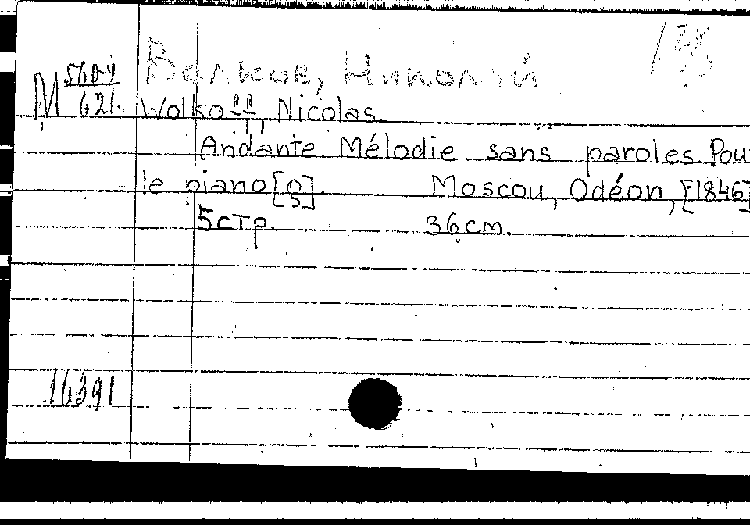 Волков, Николай
М 621. Wolkoff, Nicolas
Andante Mélodie sans paroles. Pour
le piano [05]. Moscou, Odéon, [1846]
5 стр. 36 cm.
16391